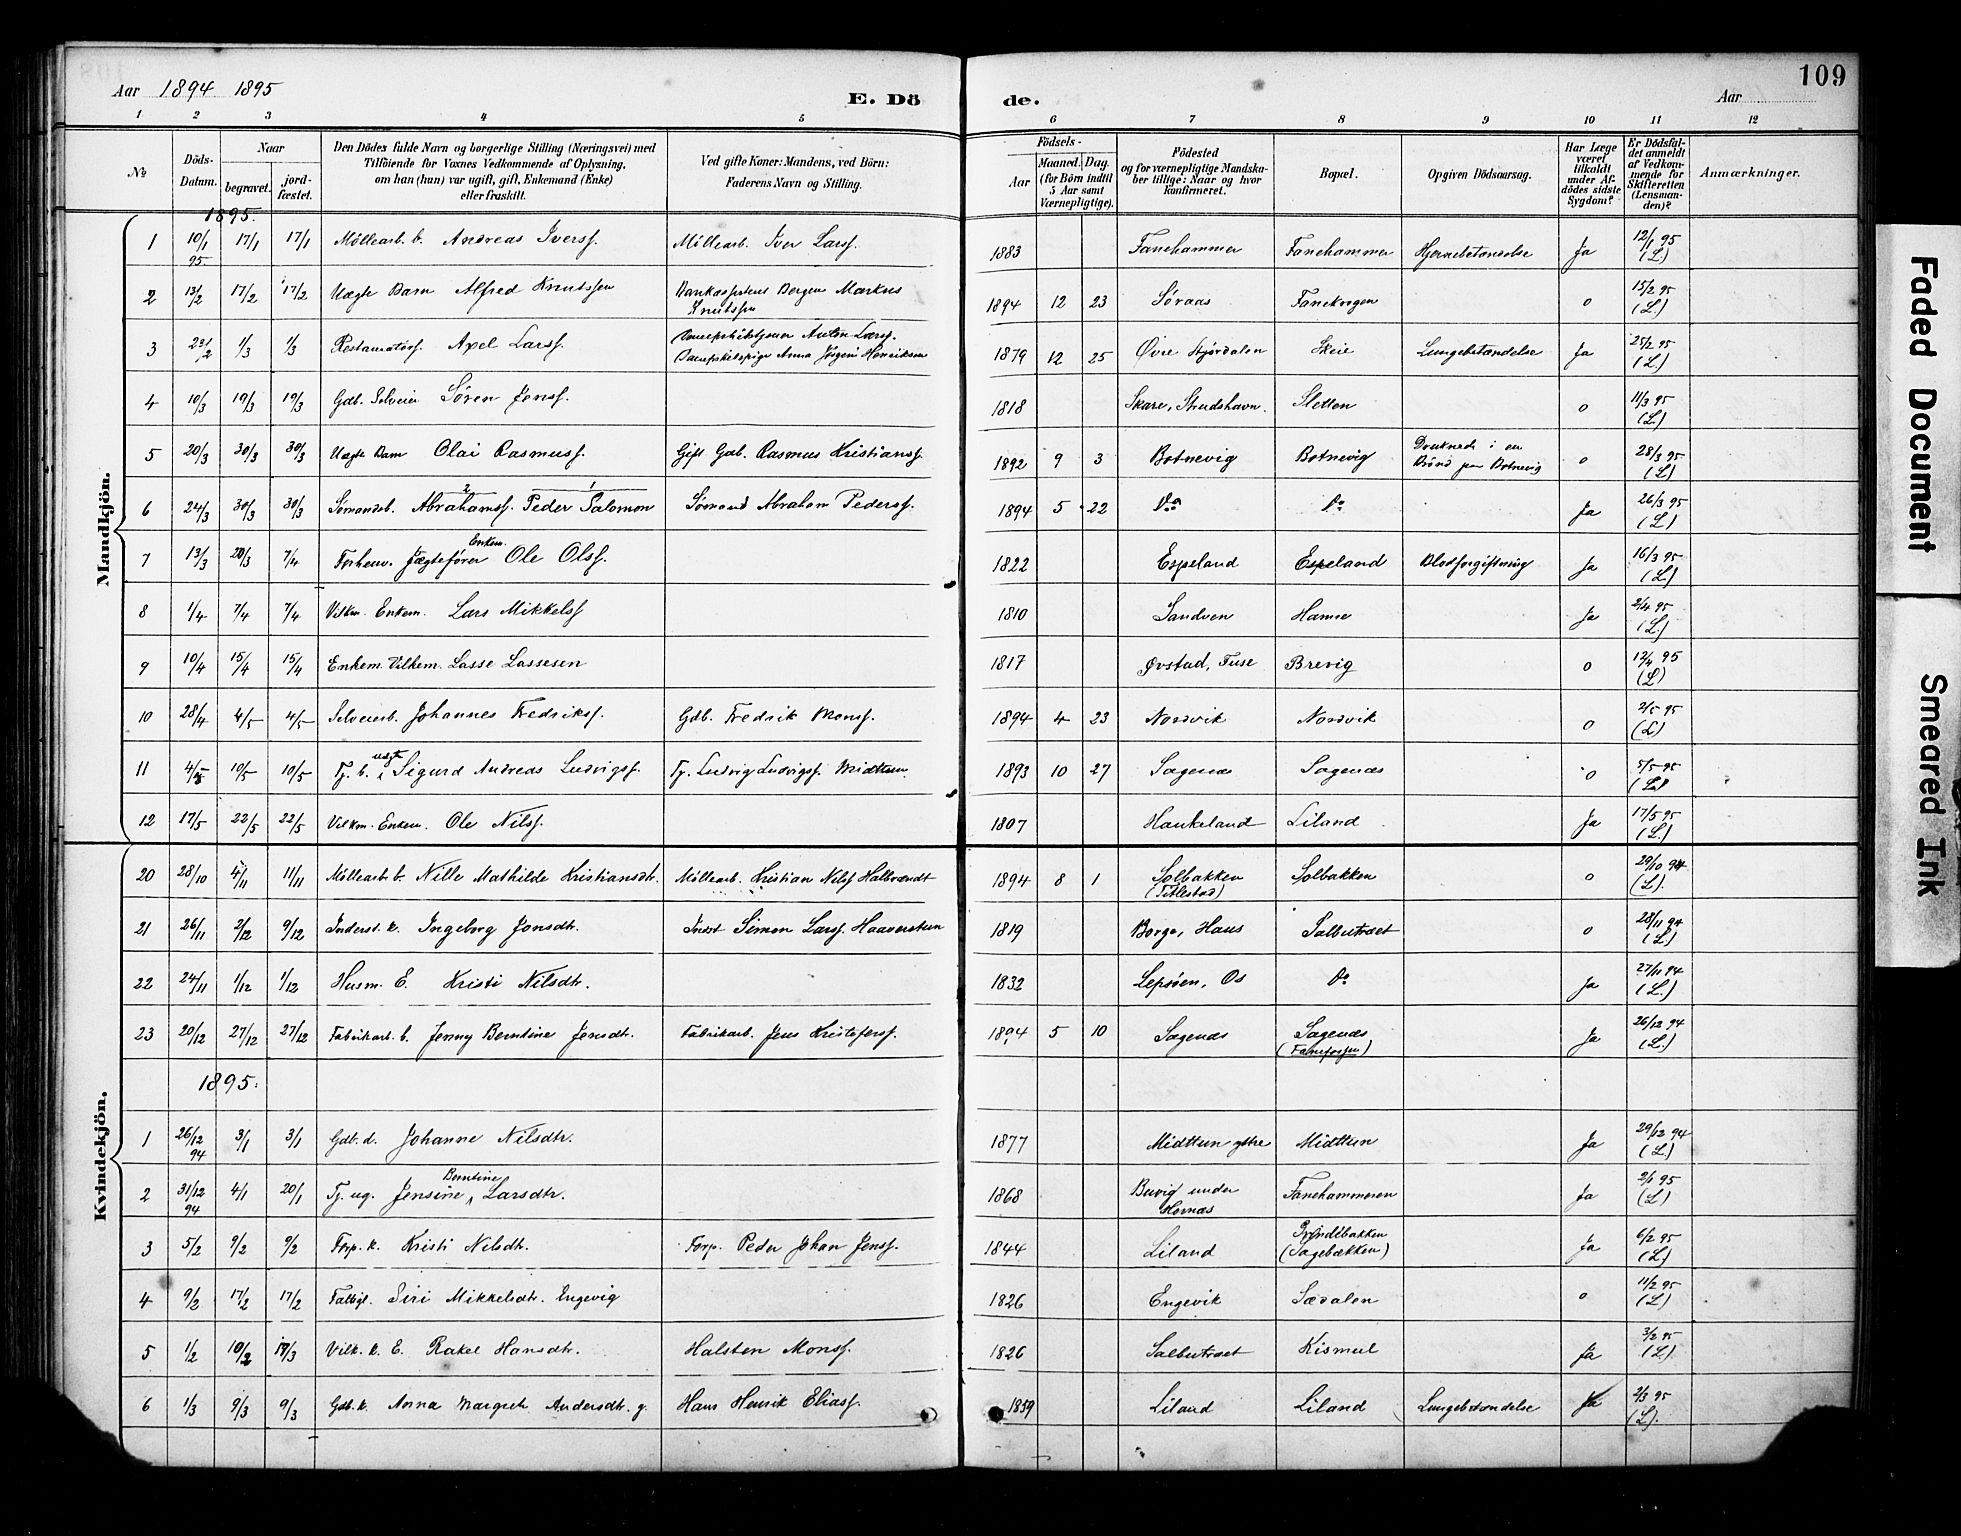 109
Aar 1894 1895
E. Dö de.
Aar
1 2 3 4 5 6 7 8 9 10 11 12
No
Döds-Datum.
Naar
begravet. jord-fæstet.
Den Dödes fulde Navn og borgerlige Stilling (Næringsvei) med
Tilföiende for Voxnes Vedkommende af Oplysning,
om han (hun) var ugift, gift, Enkemand (Enke)
eller fraskilt.
Ved gifte Koner: Mandens, ved Börn:
Faderens Navn og Stilling.
Födsels-
Aar Maaned. Dag.
(for Börn indtil
5 Aar samt
Værnepligtige).
Födested
og for værnepligtige Mandska-
ber tillige: Naar og hvor
konfirmeret.
Bopæl.
Opgiven Dödsaarsag.
Har Læge
været
tilkaldt
under Af-
dödes sidste
Sygdom?
Er Dödsfal-
det anmeldt
af Vedkom-
mende for
Skifteretten
(Lensman-
den)?
Anmærkninger.
Mandkjön.
1895.
1 10/1 95. 17/1 17/1 Möllearb. b. Andreas Iversf. Möllearb. Iver Larsf. 1883 Fanehammer Fanehammer Hjernebetændelse Ja 12/1 95 (L)
2 13/2 17/2 17/2 Uægte Barn Alfred Knutssen Bergen Markus Knutssen 1894 12 23 Søraas Fanekrogen o 15/2 95 (L.)
3 23/2 1/3 1/3 Axel Larsf. Anton Larsf. Anna Henriksen 1879 12 25 Øvre Stjørdalen Skeie Lungebetændelse Ja 25/2 95 (L.)
4 10/3 19/3 19/3 Gdb. Selveier Sören Jensf. 1818 Skare, Strudshavn. Sletten o 11/3 95 (L.)
5 20/3 30/3 30/3 Uægte Barn Olai Rasmusf. Gift Gdb. Rasmus Kristiansf. 1892 9 3 Botnevig Botnevig Druknede i en Brönd paa Botnevig o 28/3 95 (L)
6 24/3 30/3 30/3 Sömandsb. 2 Abrahamsf. 1 Peder Salomon Sømand Abraham Pedersf. 1894 5 22 Do Do Ja 26/3 95 (L)
7 13/3 20/3 7/4 Forhenv. Jægtefører Enkem. Ole Olsf. 1822 Espeland Espeland Blodforgiftning Ja 16/3 95 (L)
8 1/4 7/4 7/4 Vilkm. Enkem. Lars Mikkelsf 1810 Sandven Hamre Ja 2/4 95 (L.)
9 10/4 15/4 15/4 Enkem. Vilkem. Lasse Lassesen 1817 Øvstad, Fuse Brevig o 12/4 95 (L)
10 28/4 4/5 4/5 Selveierb. Johannes Fredriksf. Gdb. Fredrik Monsf. 1894 4 23 Nordvik Nordvik o 2/5 95 (L)
11 4/5 10/5 10/5 Tj. b. uægte Sigurd Andreas Ludvigsf. Tj. Ludvig Ludvigsf. Midttun 1893 10 27 Sagenæs Sagenæs o 5/5 95 (L)
12 17/5 22/5 22/5 Vilkm. Enkem. Ole Nilsf. 1807 Haukeland Liland Ja 17/5 95 (L.)
Kvindekjön.
20 28/10 4/11 11/11 Möllearb. b. Nille Mathilde Kristiansdtr. Möllearb. Kristian Nilsf Halbrændt 1894 8 1 Solbakken (Titlestad) Solbakken o 29/10 94 (L).
21 26/11 2/12 9/12 Inderst. k. Ingeborg Jonsdtr. Indst Simon Larsf. Haaverstun 1819 Borge, Haus Salbutræet o 28/11 94 (L)
22 24/11 1/12 1/12 Husm. E. Kristi Nilsdtr. 1832 Lepsöen, Os Do Ja 27/11 94 (L.)
23 20/12 27/12 27/12 Fabrikarb. b. Jenny Berntine Jensdtr. Fabrikarb. Jens Kristofersf. 1894 5 10 Sagenæs Sagenæs (Fanefossen) Ja 26/12 94 (L.)
1895.
1 26/12 94 3/1 3/1 Gdb. d. Johanne Nilsdtr. 1877 Midttun ytre Midttun Ja 29/12 94 (L.)
2 31/12 94 4/1 20/1 Tj. ug. Jensine Berntine Larsdtr. 1868 Buvig under Hornæs Fanehammeren Ja 2/1 95 (L)
3 5/2 9/2 9/2 Forp. k. Kristi Nilsdtr. Forp. Peder Johan Jensf. 1844 Liland (Sagebakken) Ja 6/2 95 (L)
4 9/2 17/2 17/2 Fattigl. Siri Mikkelsdtr. Engevig 1826 Engevik Sædalen o 11/2 95 (L)
5 1/2 10/2 Vilk. k. E. Rakel Hansdtr. Halsten Monsf. 1826 Salbutræet Kismul Ja 3/2 95 (L)
6 1/3 9/3 9/3 Gdb. k. Anna Margrete Andersdtr. g. Hans Henrik Eliasf. 1859 Liland Liland Lungebetændelse Ja 2/3 95 (L).
Faded Document
Smeared Ink